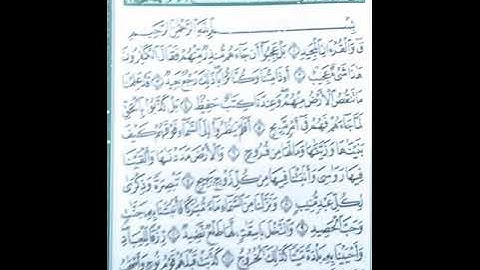 بِسْمِ اللَّهِ الرَّحْمَٰنِ الرَّحِيمِ
قٓ وَالْقُرْءَانِ الْمَجِيدِ ١ بَلْ عَجِبُوٓا أَن جَآءَهُم مُّنذِرٌ مِّنْهُمْ فَقَالَ الْكَٰفِرُونَ
هَٰذَا شَىْءٌ عَجِيبٌ ٢ أَءِذَا مِتْنَا وَكُنَّا تُرَابًا ذَٰلِكَ رَجْعٌ بَعِيدٌ ٣ قَدْ عَلِمْنَا
مَا تَنقُصُ الْأَرْضُ مِنْهُمْ وَعِندَنَا كِتَٰبٌ حَفِيظٌ ٤ بَلْ كَذَّبُوا بِالْحَقِّ
لَمَّا جَآءَهُمْ فَهُمْ فِىٓ أَمْرٍ مَّرِيجٍ ٥ أَفَلَمْ يَنظُرُوٓا إِلَى السَّمَآءِ فَوْقَهُمْ كَيْفَ
بَنَيْنَٰهَا وَزَيَّنَّٰهَا وَمَا لَهَا مِن فُرُوجٍ ٦ وَالْأَرْضَ مَدَدْنَٰهَا وَأَلْقَيْنَا
فِيهَا رَوَٰسِىَ وَأَنۢبَتْنَا فِيهَا مِن كُلِّ زَوْجٍۭ بَهِيجٍ ٧ تَبْصِرَةً وَذِكْرَىٰ
لِكُلِّ عَبْدٍ مُّنِيبٍ ٨ وَنَزَّلْنَا مِنَ السَّمَآءِ مَآءً مُّبَٰرَكًا فَأَنۢبَتْنَا بِهِۦ جَنَّٰتٍ
وَحَبَّ الْحَصِيدِ ٩ وَالنَّخْلَ بَاسِقَٰتٍ لَّهَا طَلْعٌ نَّضِيدٌ ١٠ رِّزْقًا لِّلْعِبَادِ
وَأَحْيَيْنَا بِهِۦ بَلْدَةً مَّيْتًا كَذَٰلِكَ الْخُرُوجُ ١١ كَذَّبَتْ قَبْلَهُمْ قَوْمُ نُوحٍ وَأَصْحَٰبُ